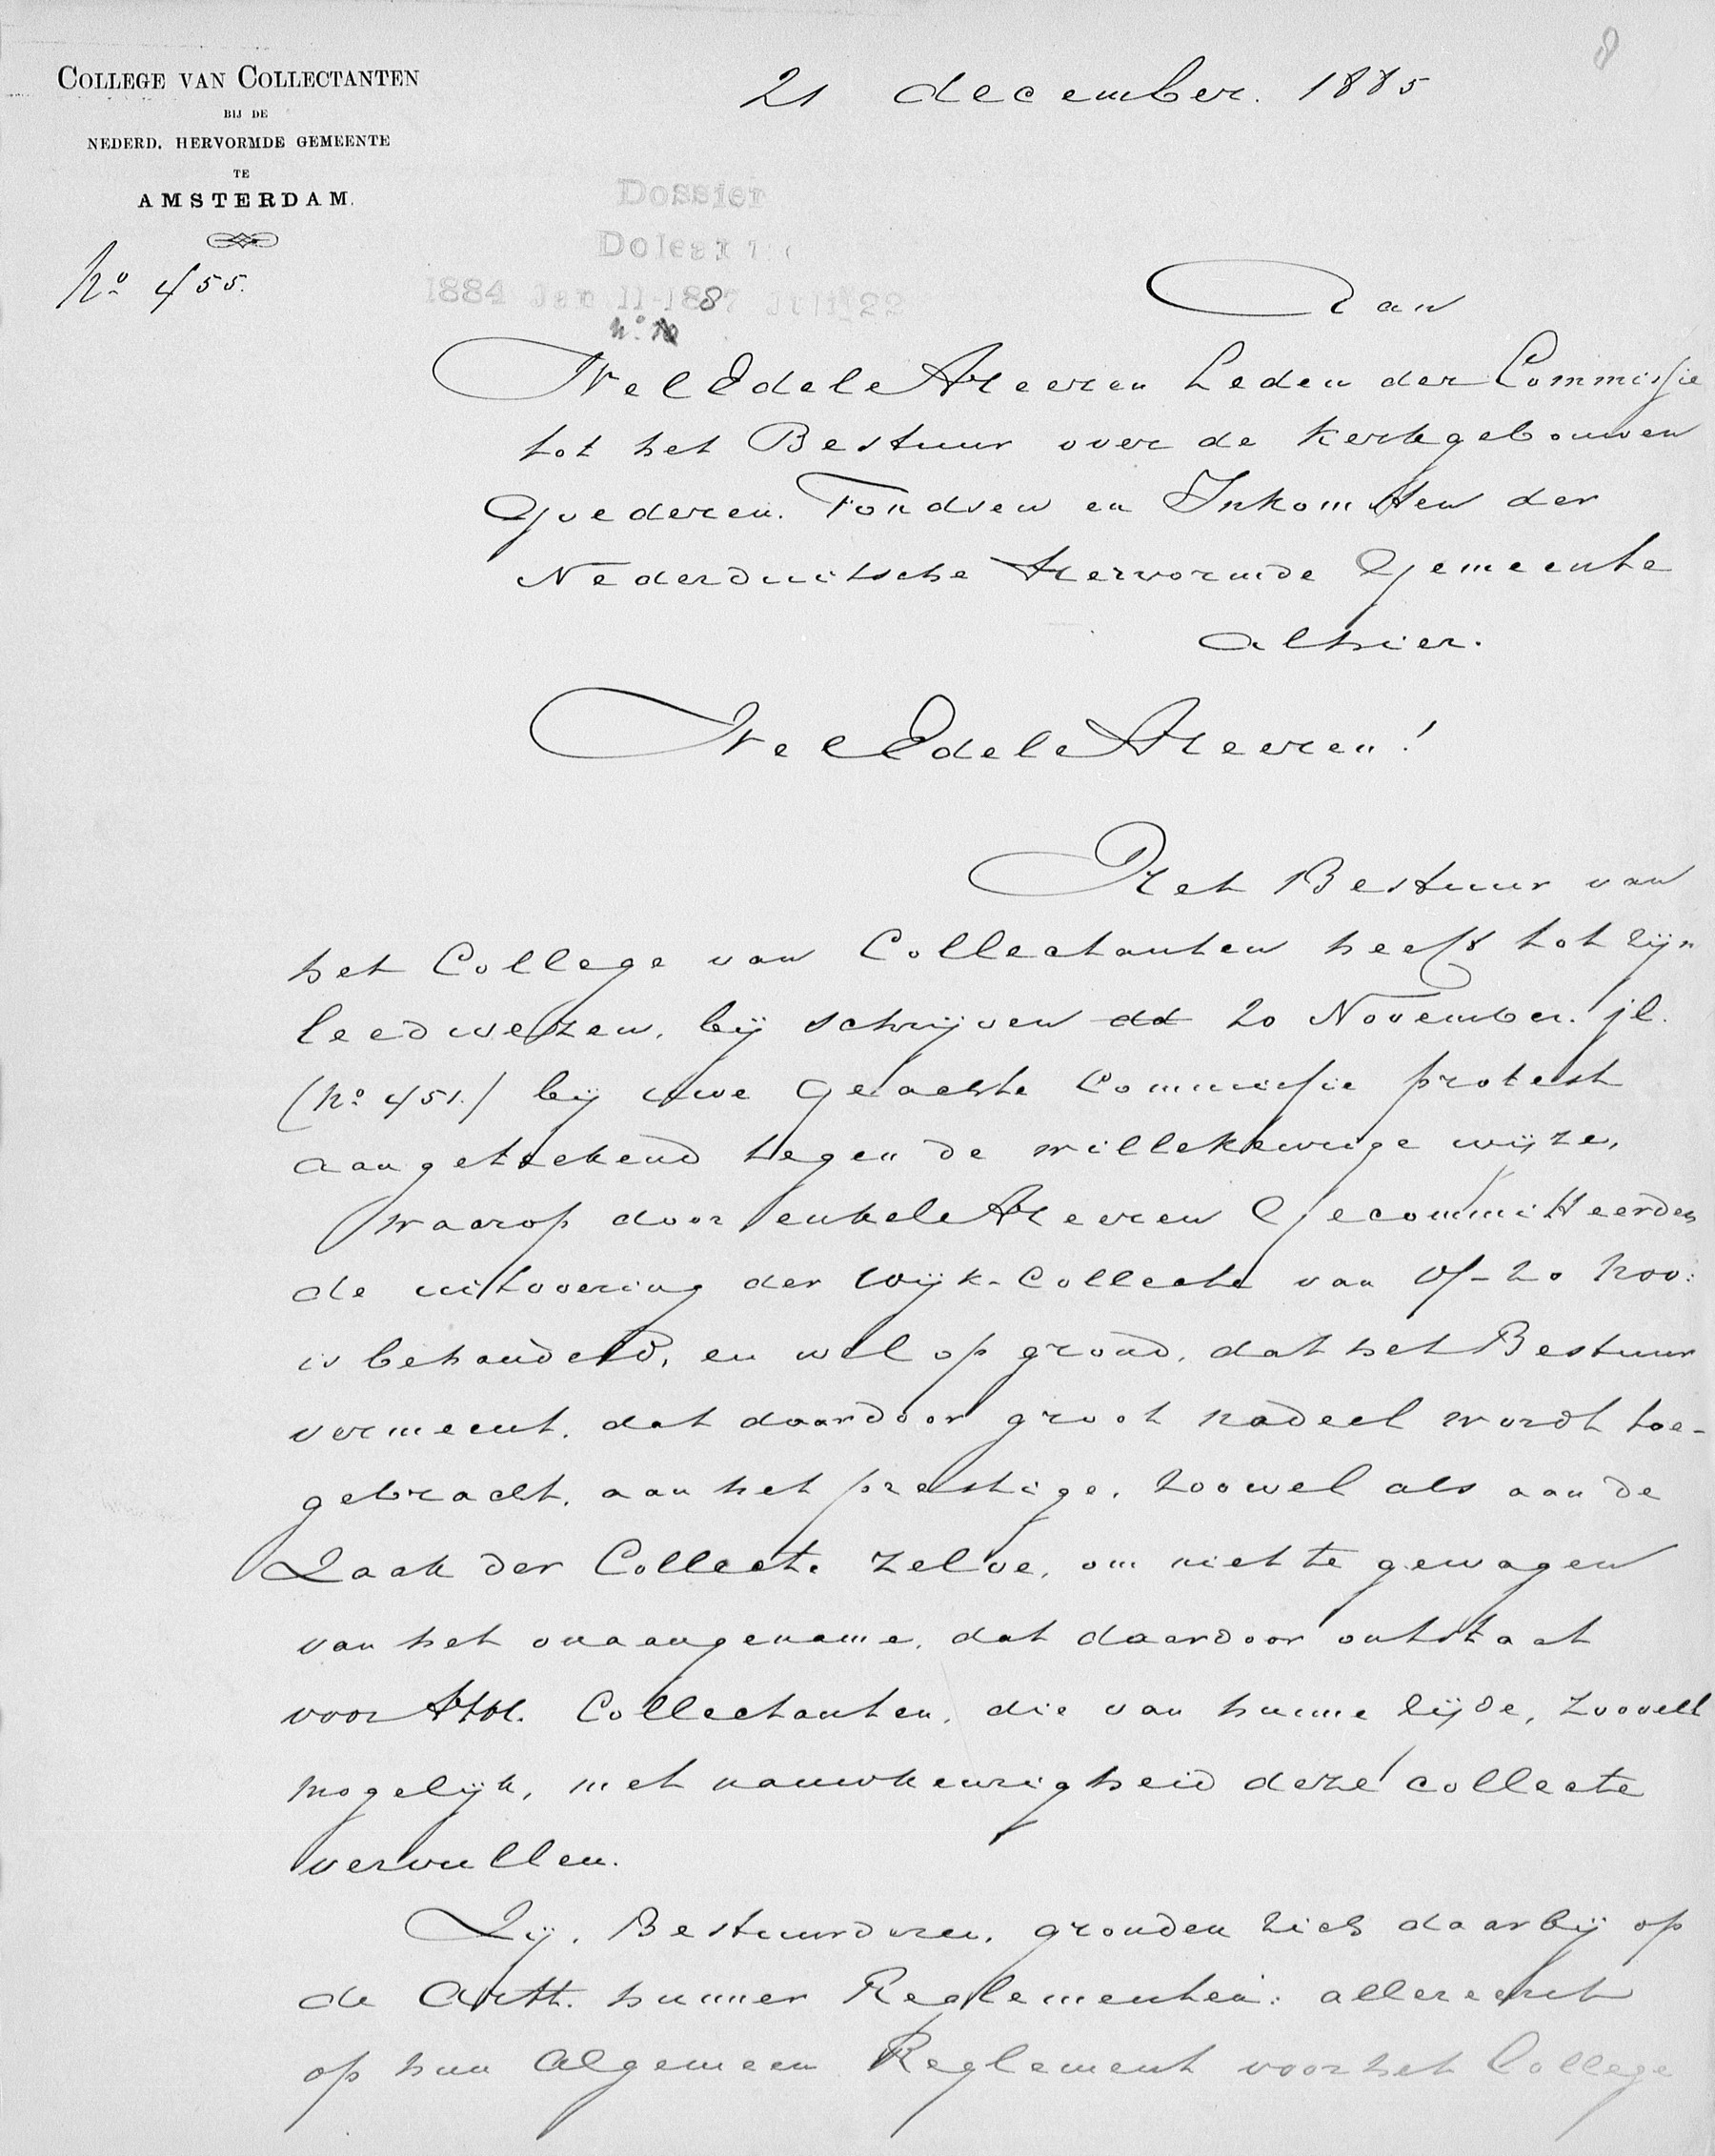 COLLEGE VAN COLLECTANTEN
BIJ DE
NEDERD. HERVORMDE GEMEENTE
TE
AMSTERDAM.
No 455.
21 december. 1885
8
Dossier
Doleantie
1884 Jan 11-1887 Juli 22
Aan
WelEdele Heeren Leden der Commissie
tot het Bestuur over de Kerkgebouwen
Goederen. Fondsen en Inkomsten der
Nederduitsche Hervormde Gemeente
alhier.
WelEdele Heeren!
Het Bestuur van
het College van Collectanten heeft tot zijn
leedwezen, bij schrijven dd 20 November. jl.
(No 451.) bij uwe geachte Commissie protest
aangeteekend tegen de willekeurige wijze,
waarop door enkele Heeren Gecommitteerden
de uitvoering der Wijk-Collecte van 15-20 Nov:
is behandeld, en wel op grond, dat het Bestuur
vermeent, dat daardoor groot nadeel wordt toe-
gebracht, aan het prestige, zoowel als aan de
Zaak der Collecte zelve, om niet te gewagen
van het onaangename, dat daardoor ontstaat
voor HH. Collectanten, die van hunne zijde, zooveel
mogelijk, met nauwkeurigheid deze collecte
vervullen.
Zij, Bestuurderen, gronden zich daarbij op
de Artt. hunner Reglementen: allereerst
op hun Algemeen Reglement voor het College